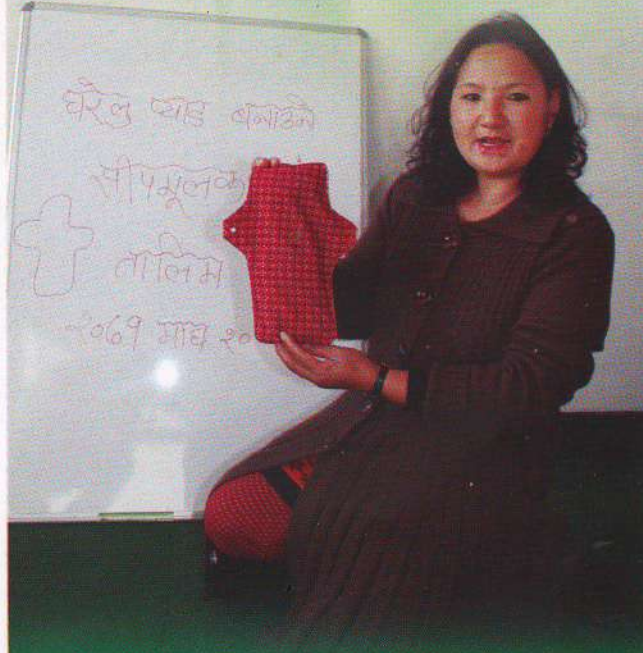 घरेलु प्याड बनाउने
सीपमूलक
तालिम
२०७१ माघ २०